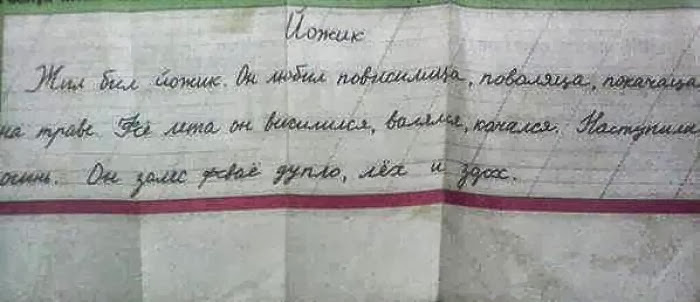 Йожик
Жил бил йожик. Он любил повисилица, поваляца, покачаца
на траве. Фсё лета он висилился, валялся, качался. Наступила
осинь. Он залес фсваё дупло, лёх и здох.